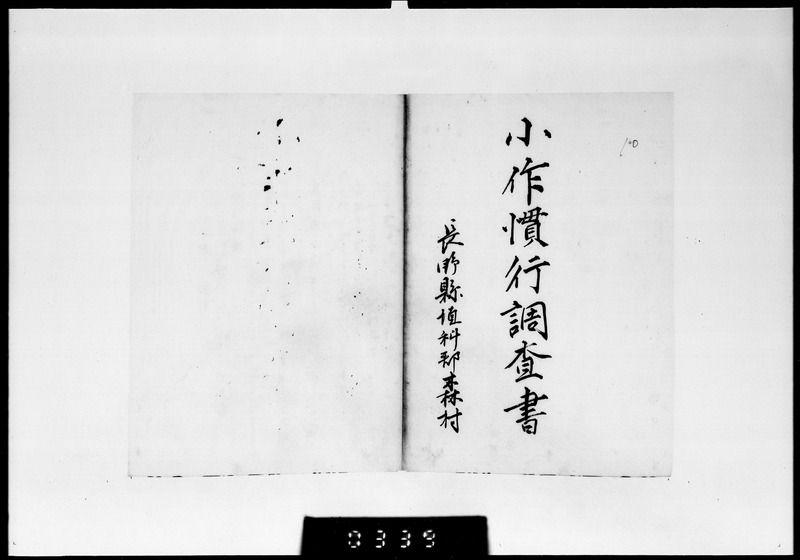 小作慣行調査書
長野縣埴科郡森村
0339